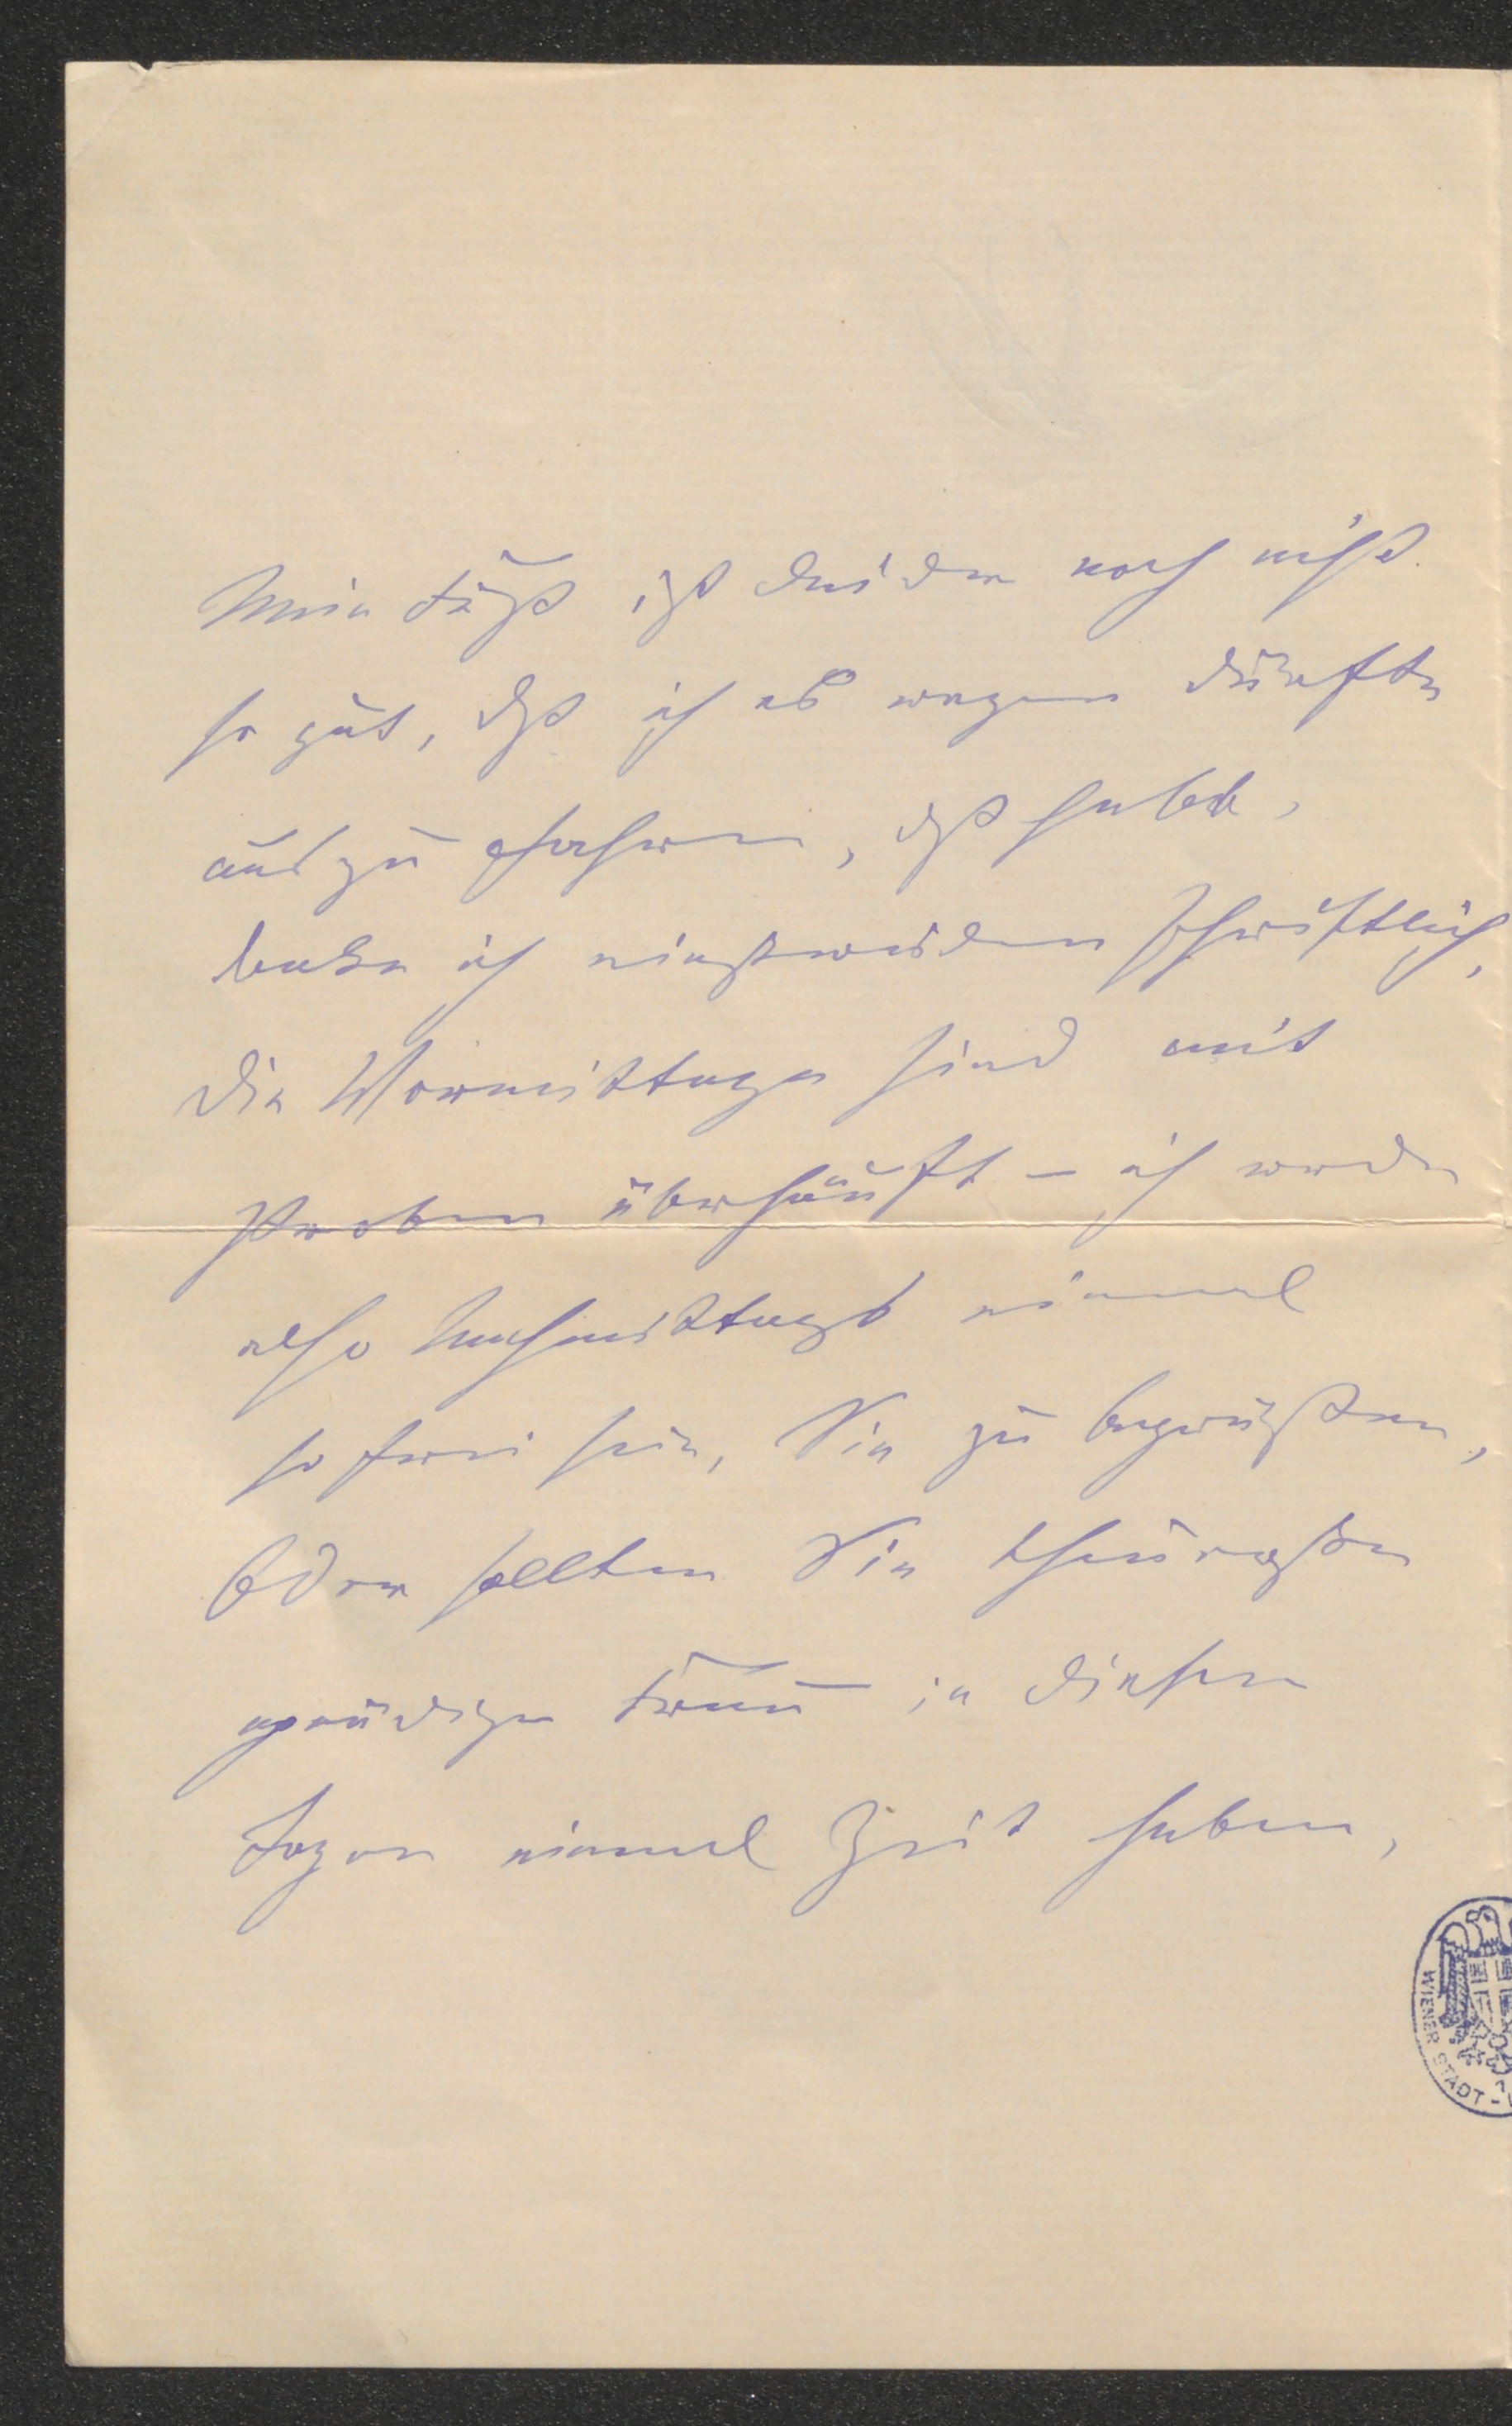 Mein Fuß ist leider noch nicht
so gut, daß ich es wagen dürfte
auszufahren, deßhalb,
danke ich einstweilen schriftlich,
die Vormittage sind mit
Proben überhäuft – ich werde
also Nachmittags einmal
so frei sein, Sie zu begrüßen,
Oder sollten Sie theuerste
gnädige Frau in diesen
Tagen einmal Zeit haben,
WIENER STADT-